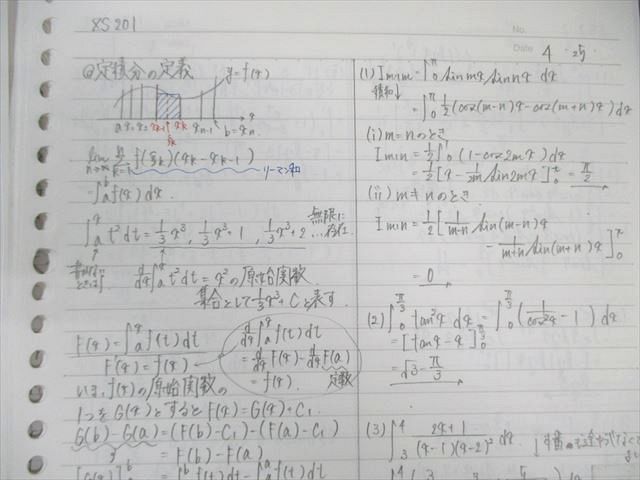 XS201
No.
Date 4・25
@定積分の定義
y=f(x)
a x₁ x₂ xk-1 xk xn-1 b=xn
ξk
lim n→∞ Σ k=1 n f(ξk)(xk-xk-1)
リーマン和
=∫a b f(x)dx.
∫a x t²dt=1/3x³, 1/3x³+1, 1/3x³+2
無限に
存在
d/dx∫a x t²dt=x²の原始関数
集合として1/3x³+Cと表す
F(x)=∫a x f(t)dt
F'(x)=f(x)
d/dx∫a x f(t)dt
=d/dx F(x)-d/dx F(a)
=f(x).
定数
いま、f(x)の原始関数の
1つをG(x)とするとF(x)=G(x)+C₁
G(b)-G(a)=(F(b)-C₁)-(F(a)-C₁)
=F(b)-F(a)
[G(x)]a b=∫a b f(t)dt-∫a a f(t)dt
(1) Im,n=∫0 π sin mx sin nx dx
積和↓
=∫0 π 1/2(cos(m-n)x-cos(m+n)x)dx
(i) m=nのとき
Im,n=1/2∫0 π(1-cos2mx)dx
=1/2[x-1/2m sin2mx]0 π=π/2
(ii) m≠nのとき
Im,n=1/2[1/m-n sin(m-n)x
-1/m+n sin(m+n)x]0 π
=0
(2)∫0 π/3 tan²x dx=∫0 π/3(1/cos²x-1)dx
=[tanx-x]0 π/3
=√3-π/3
(3)∫3 4 2x+1/(x-1)(x-2)² dx